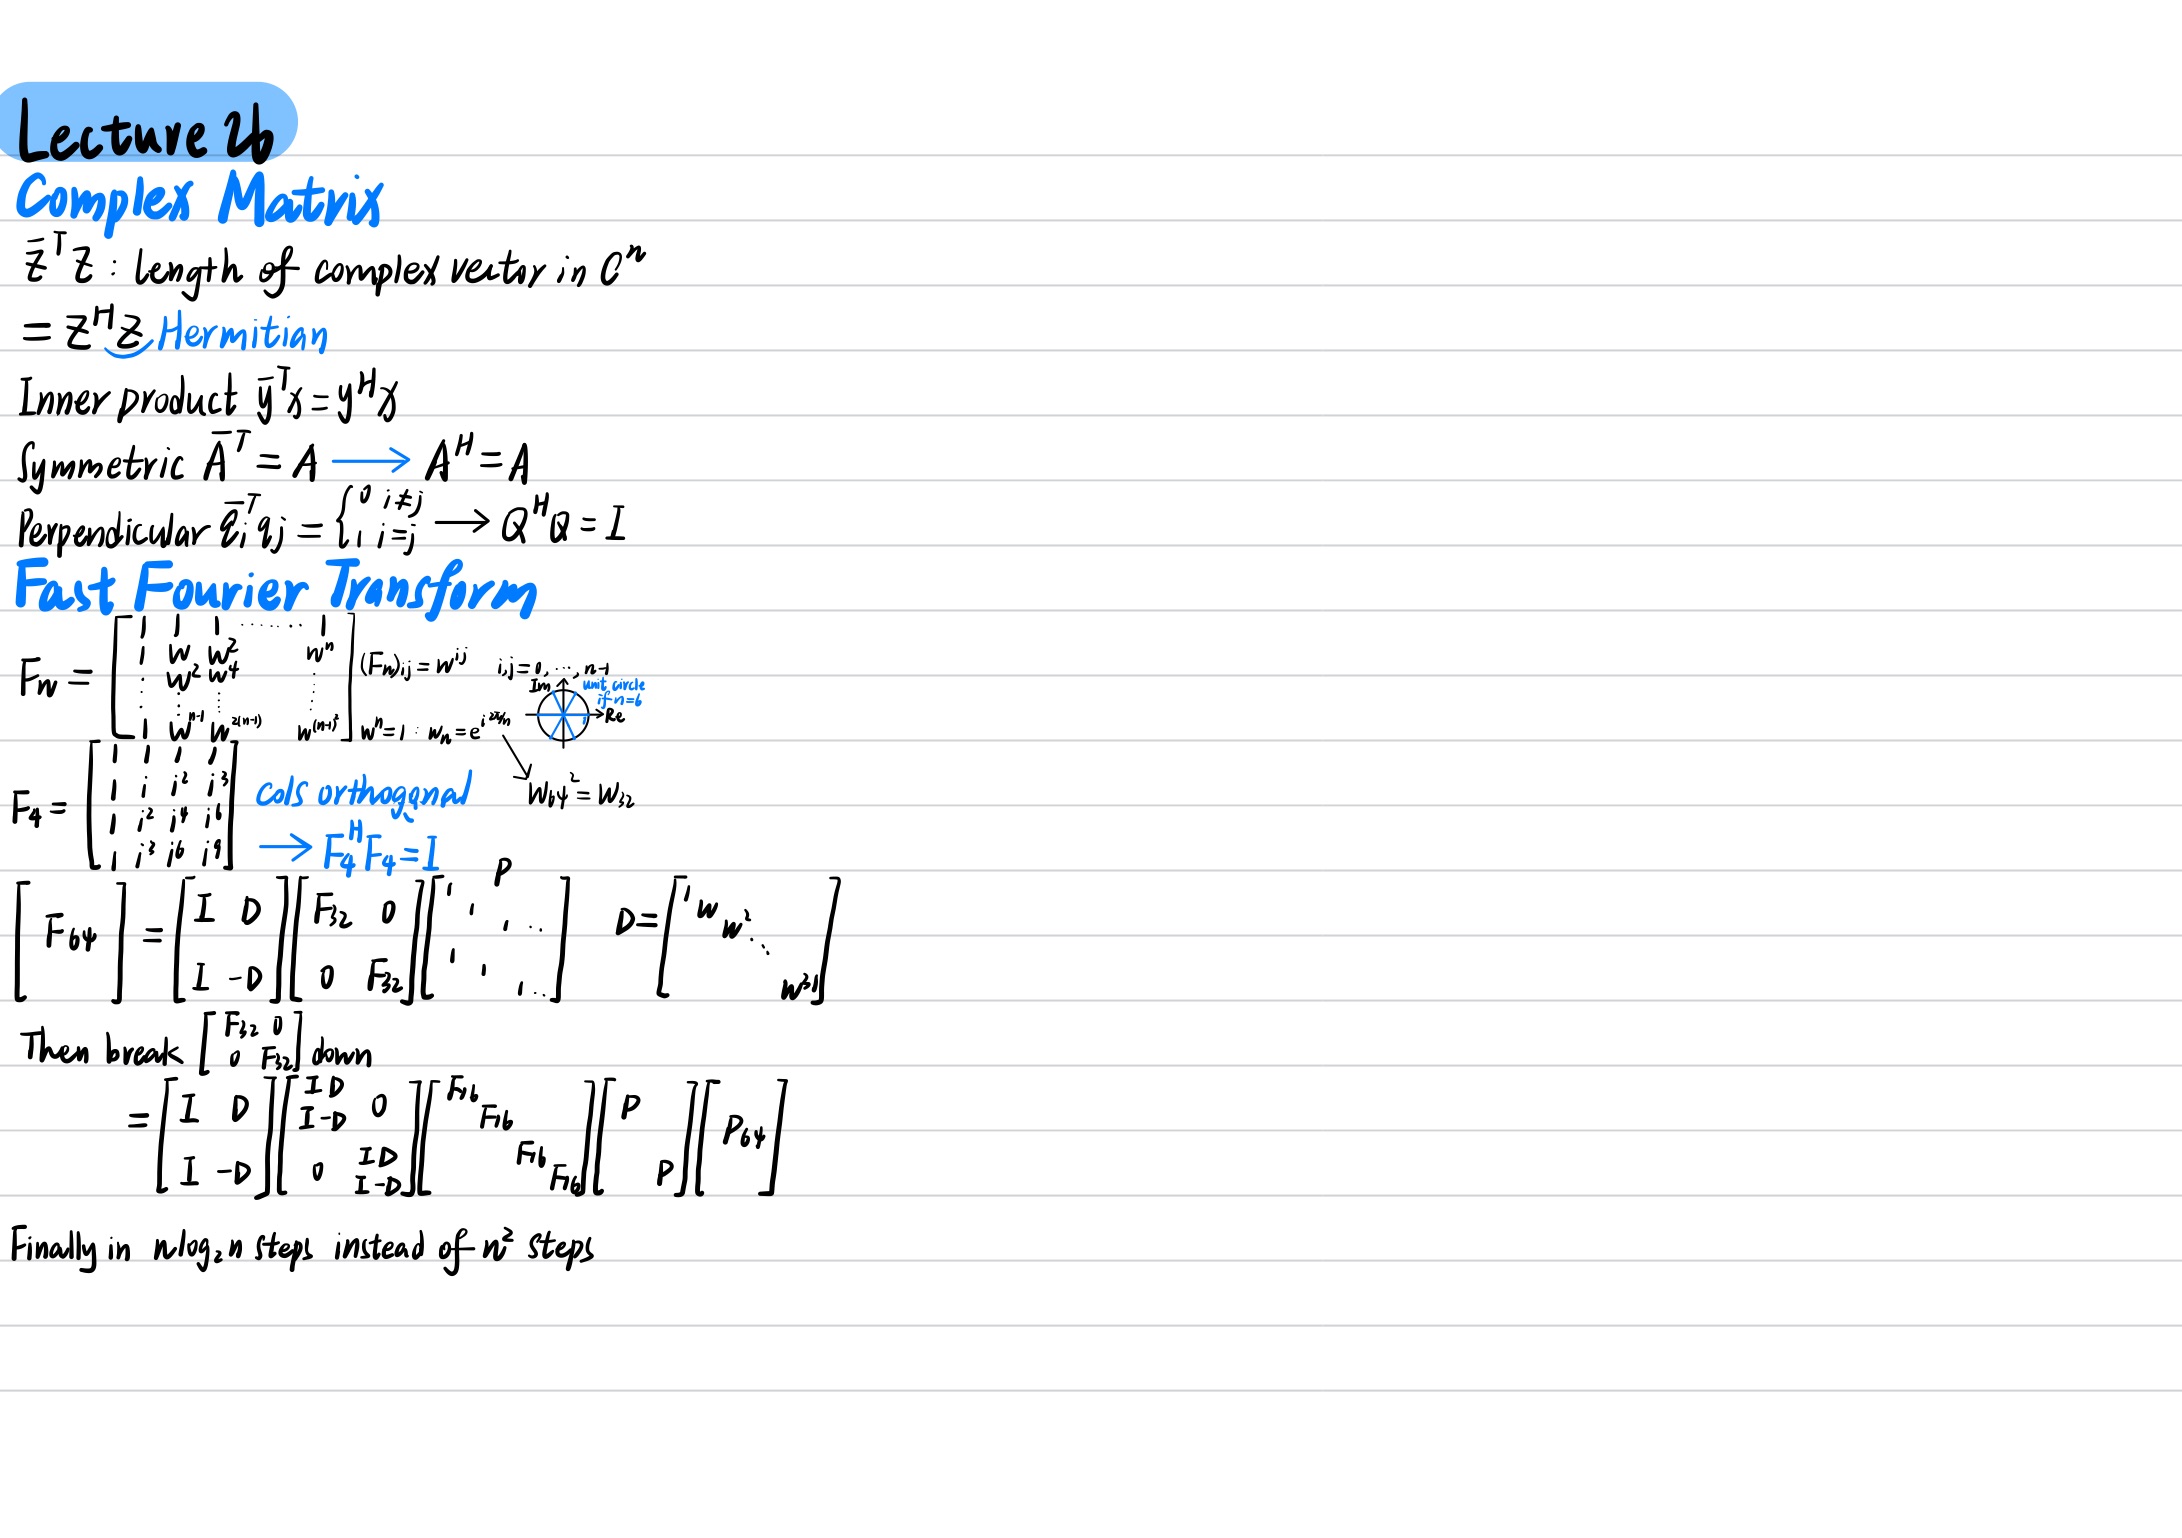 Lecture 26
Complex Matrix
z̄ᵀz : length of complex vector in Cⁿ
= zᴴz Hermitian
Inner product ȳᵀx = yᴴx
Symmetric Āᵀ = A → Aᴴ = A
Perpendicular q̄ᵢᵀqⱼ = { 0 i≠j
1 i=j → QᴴQ = I
Fast Fourier Transform
Fₙ = [ 1 1 1 ······ 1
1 w w² wⁿ
: w² w⁴ :
: : : :
1 wⁿ⁻¹ w²⁽ⁿ⁻¹⁾ w⁽ⁿ⁻¹⁾² ]
(Fₙ)ij = w^ij i,j = 0, ..., n-1
wⁿ = 1 : wₙ = e^(i2π/n)
Im
unit circle
if n=6
1
Re
w₆₄² = w₃₂
F₄ = [ 1 1 1 1
1 i i² i³
1 i² i⁴ i⁶
1 i³ i⁶ i⁹ ]
cols orthogonal
→ F₄ᴴF₄ = I
P
[ F₆₄ ] = [ I D
I -D ] [ F₃₂ 0
0 F₃₂ ] [ 1
1
1 ··
1
1
1 ·· ] D = [ 1 w w² ··. w³¹ ]
Then break [ F₃₂ 0
0 F₃₂ ] down
= [ I D
I -D ] [ I D
I -D 0
0 I D
I -D ] [ F₁₆
F₁₆
F₁₆
F₁₆ ] [ P
P ] [ P₆₄ ]
Finally in nlog₂n steps instead of n² steps